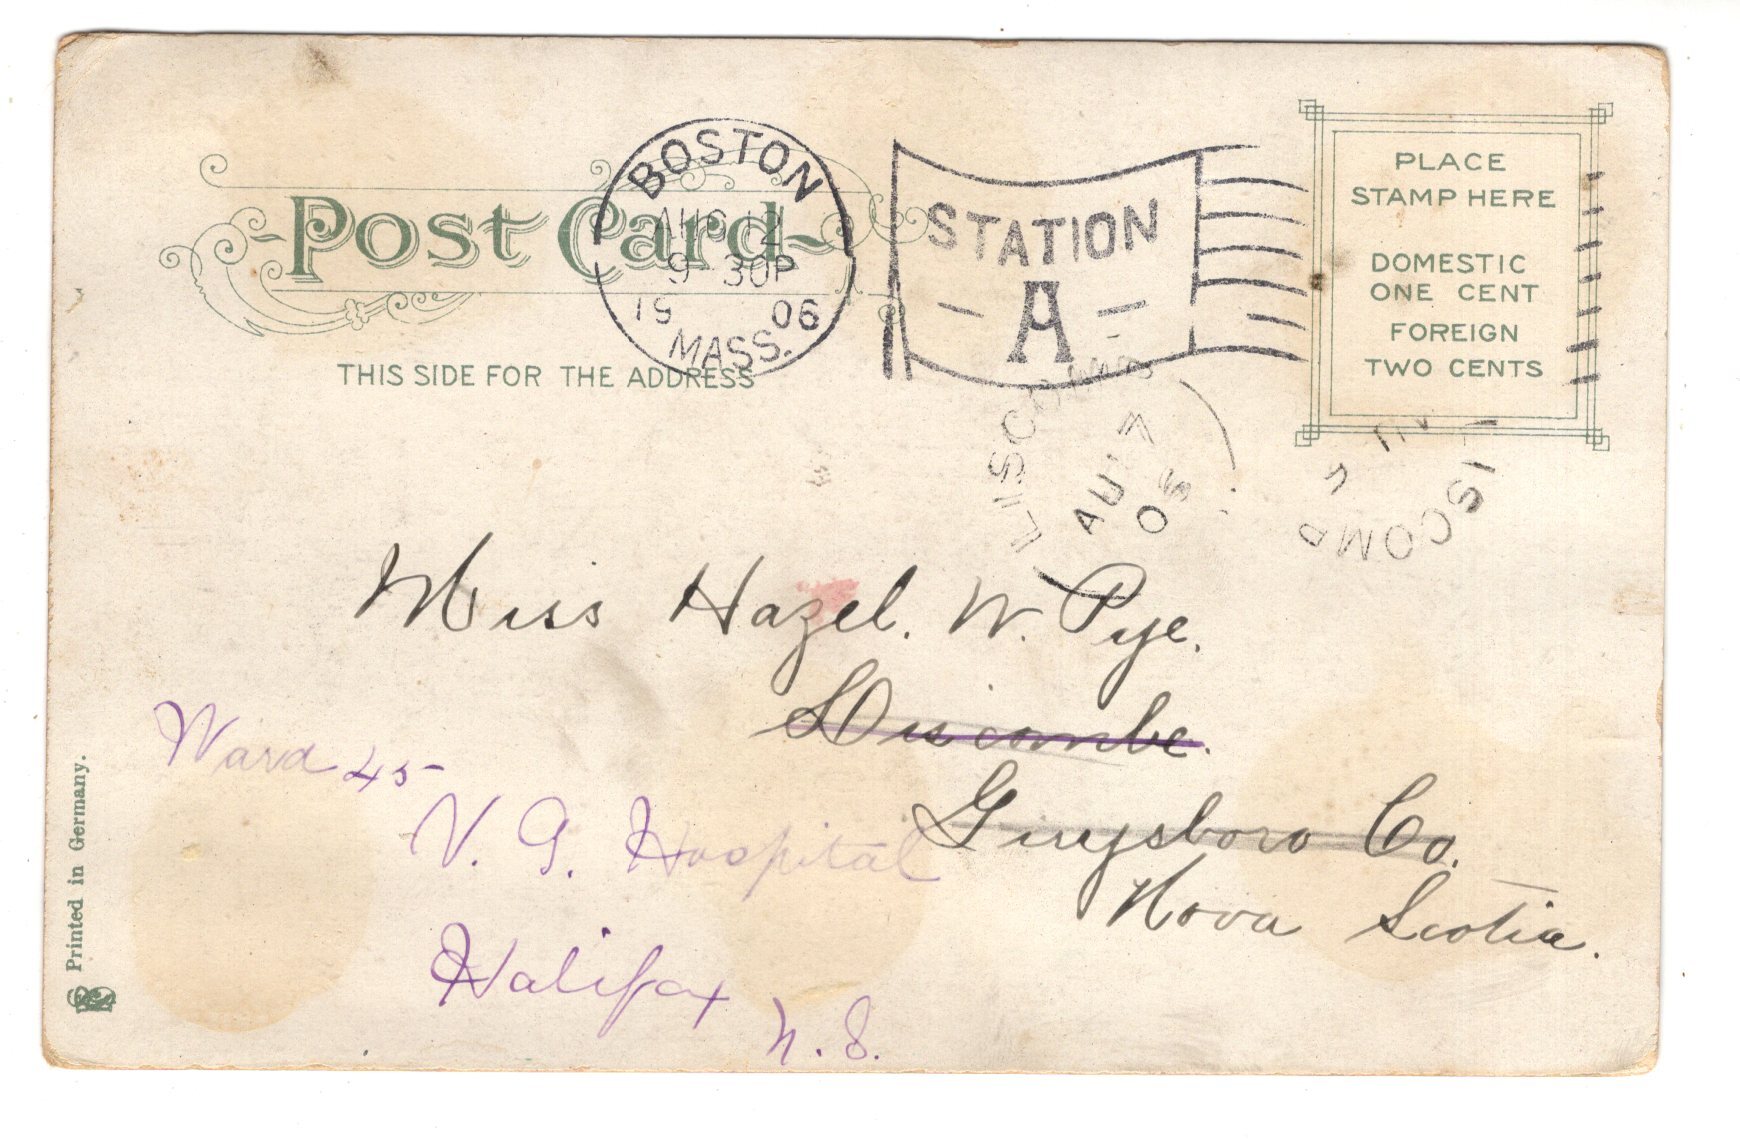 Post Card
THIS SIDE FOR THE ADDRESS
BOSTON
AUG 12
9-30P
19 06
MASS.
STATION
A
PLACE
STAMP HERE
DOMESTIC
ONE CENT
FOREIGN
TWO CENTS
LISCOMB
AU 7
06
LISCOMB
Miss Hazel. W. Pye.
Liscombe.
Guysboro Co.
Nova Scotia.
Ward 45
V. G. Hospital
Halifax
N. S.
Printed in Germany.